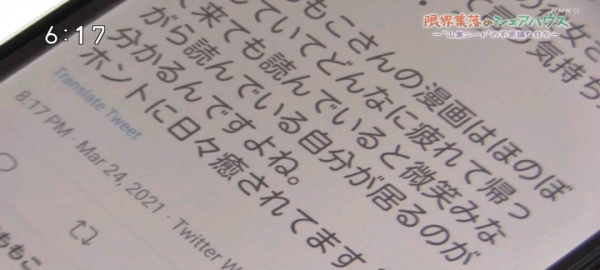 6:17
限界集落のシェアハウス
～"山奥ニート"の不思議な日々～
気持ち
もこさんの漫画はほのぼ
していてどんなに疲れて帰っ
来ても読んでいると微笑みな
がら読んでいる自分が居るのが
分かるんですよね。
ホントに日々癒されてます
Translate Tweet
8:17 PM · Mar 24, 2021 · Twitter W
ももこ